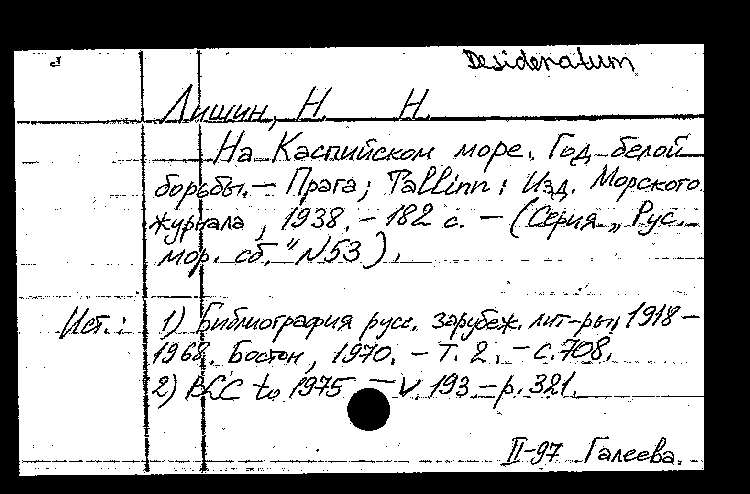 Desideratum
Лишин, Н. Н.
На Каспийском море. Год белой
борьбы. – Прага; Tallinn: Изд. Морского
журнала, 1938. – 182 с. – (Серия „Рус.
мор. сб." N53).
Ист.: 1) Библиография русс. зарубеж. лит-ры, 1918 –
1968. Бостон, 1970. – Т. 2. – с. 708.
2) BLC to 1975 – V. 193 – p. 321.
II-97 Галеева.